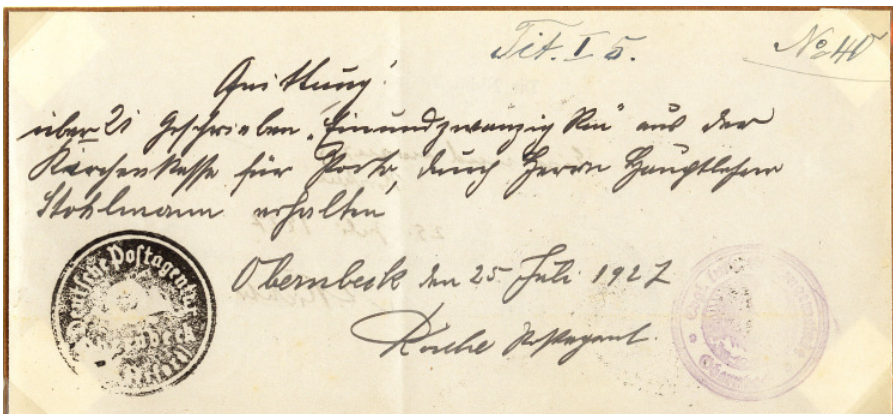 Tit. I 5.
No 40
Quittung!
über 21 geschrieben „Einundzwanzig Rm" aus der
Kirchenkasse für Porto, durch Herrn Hauptlehrer
Stohlmann erhalten
Obernbeck den 25. Juli 1927
Postagent.
Deutsche Postagentur